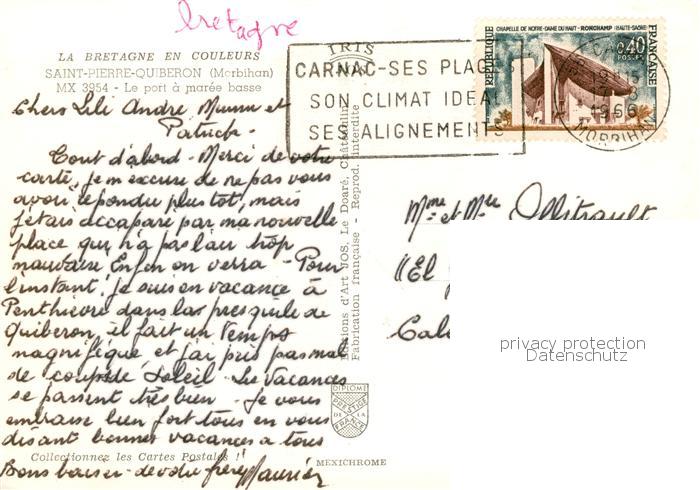 bretagne
LA BRETAGNE EN COULEURS
SAINT-PIERRE-QUIBERON (Morbihan)
MX 3954 - Le port à marée basse
Chers Lili André Mumu et
Patrick -
Tout d'abord - Merci de votre
carte, je m'excuse de ne pas vous
avoir répondu plus tôt, mais
j'étais accaparé par ma nouvelle
place qui n'a pas l'air trop
mauvaise. Enfin on verra - Pour
l'instant, je suis en vacance à
Penthièvre dans la presquile de
Quiberon, il fait un temps
magnifique et j'ai pris pas mal
de coup de soleil - Les vacances
se passent très bien - Je vous
embrasse bien fort tous en vous
disant bonnes vacances à tous
Collectionnez les Cartes Postales !
Bons baisers - de votre frère Maurice
IRIS
Editions d'Art JOS. Le Doaré, Châteaulin
Fabrication française - Reprod. interdite
DIPLOME
PRESTIGE
DE LA
FRANCE
MEXICHROME
CARNAC-SES PLAGES
SON CLIMAT IDEAL
SES ALIGNEMENTS
CHAPELLE DE NOTRE-DAME DU HAUT - RONCHAMP (HAUTE-SAÔNE)
REPUBLIQUE
FRANÇAISE
0,40
POSTES
CARNAC
1966
MORBIHAN
Mme et Mr Ollitrault
"El
privacy protection
Datenschutz